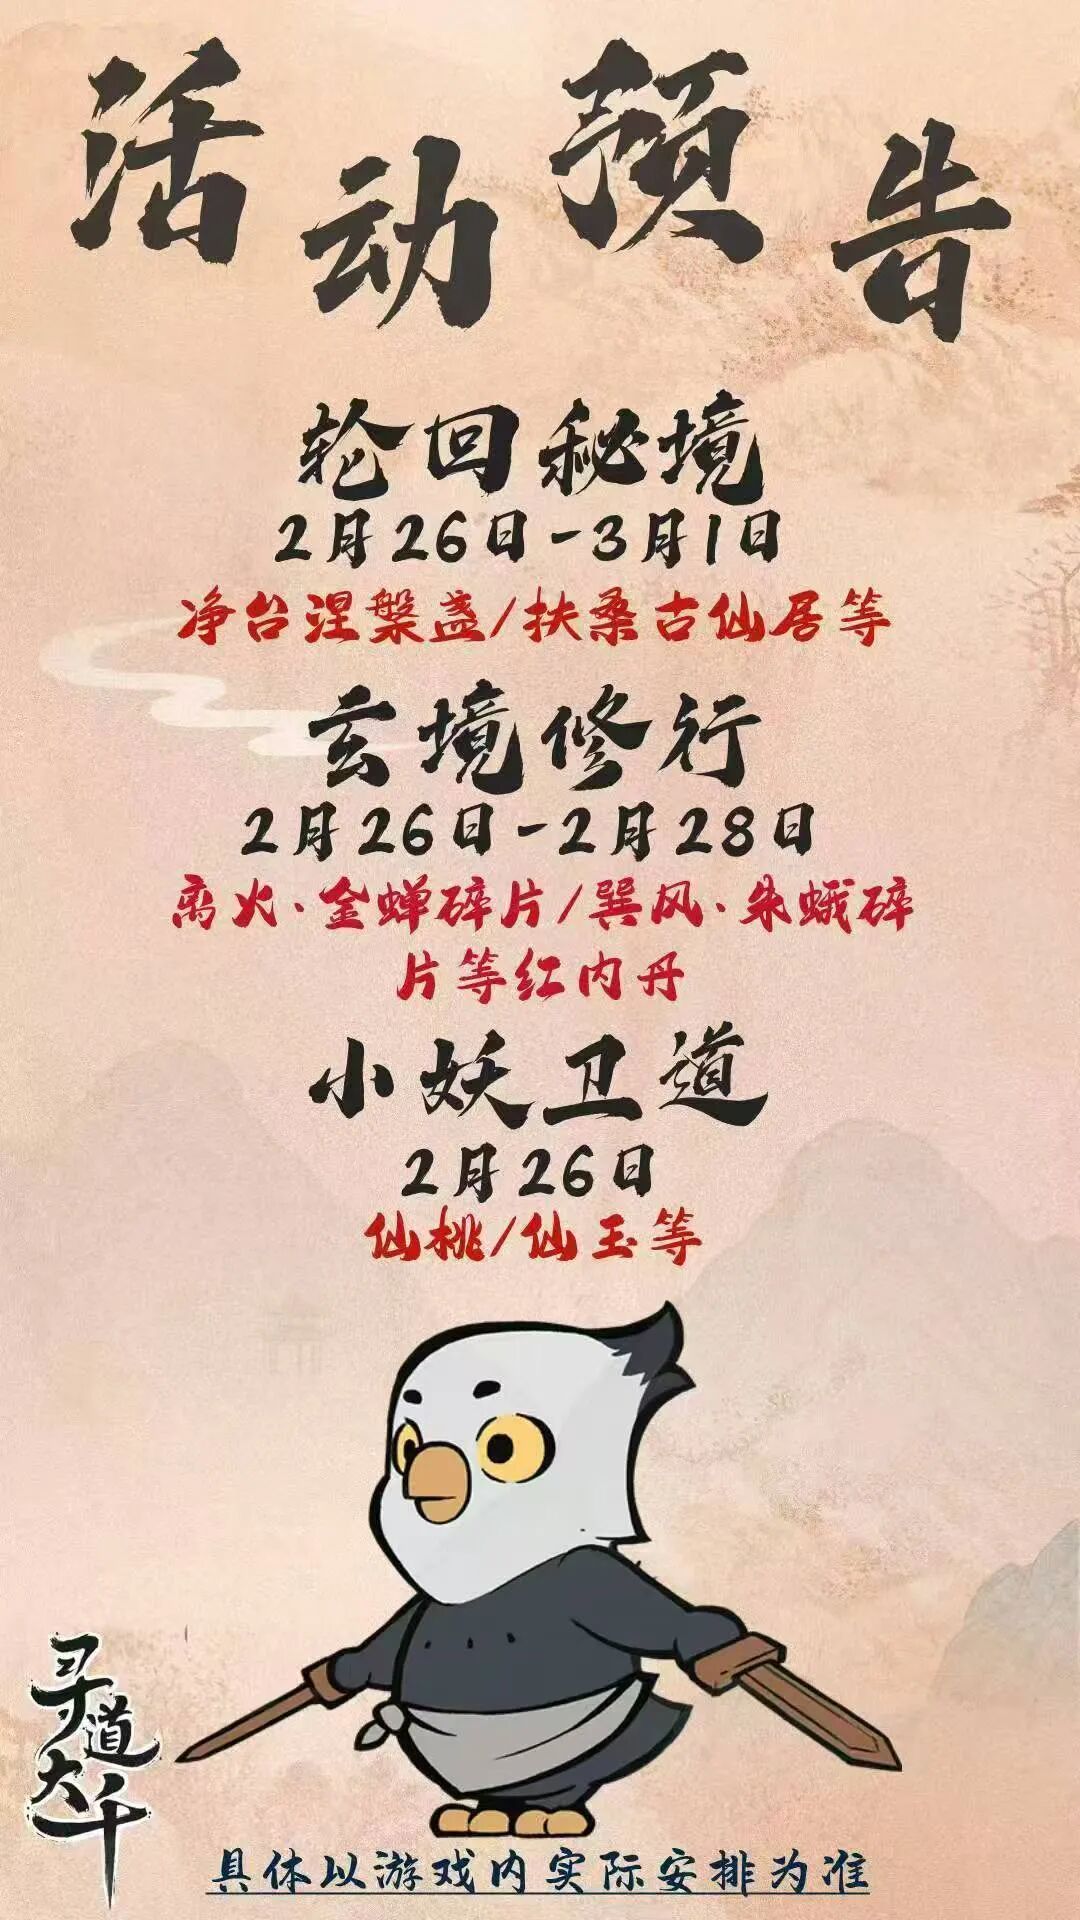 活动预告
轮回秘境
2月26日-3月1日
净台涅槃盏/扶桑古仙居等
玄境修行
2月26日-2月28日
离火·金蝉碎片/巽风·朱蛾碎
片等红内丹
小妖卫道
2月26日
仙桃/仙玉等
寻道大千
具体以游戏内实际安排为准